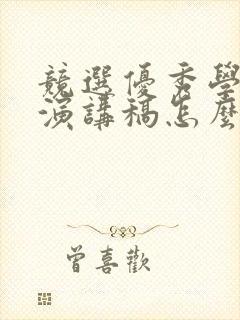 競選優秀學
演講稿怎麼
曾喜歡